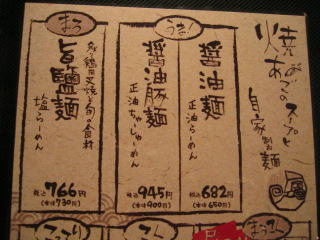 焼あごのスープと
自家製麺
うま!
醤油麺
正油らーめん
税込 682円
(本体 650円)
醤油豚麺
正油ちゃーしゅーめん
税込 945円
(本体 900円)
まろ
旨鹽麺
炙り鶏肉叉焼と旬の食材
塩らーめん
税込 766円
(本体 730円)